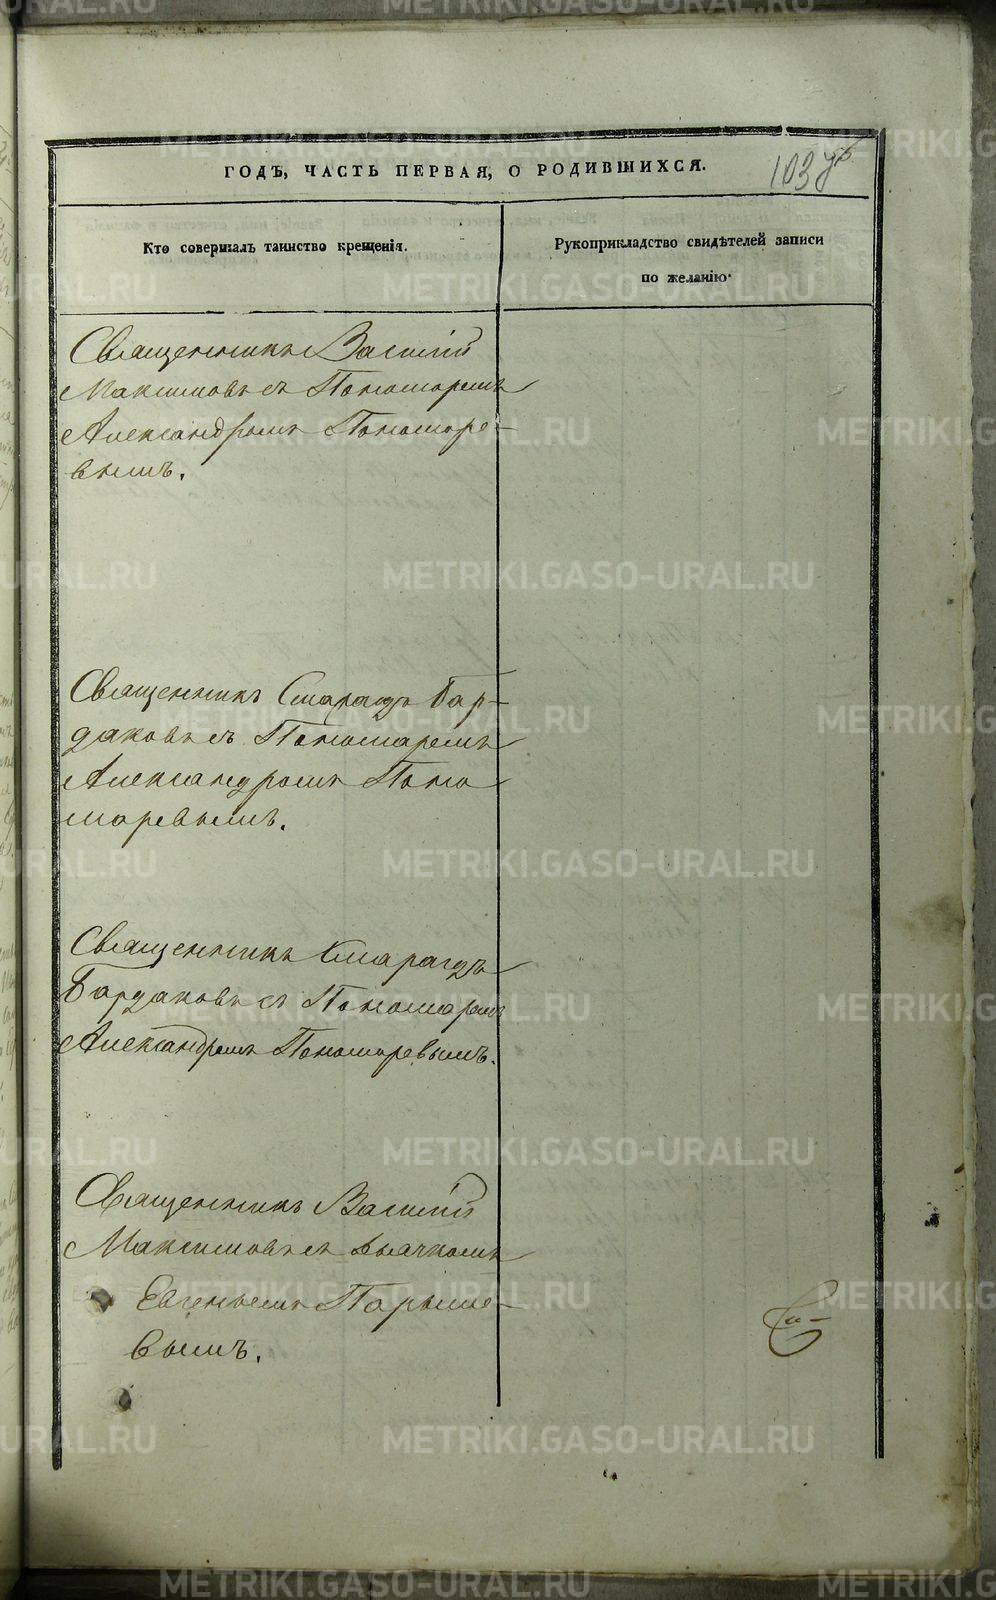 ГОДЪ, ЧАСТЬ ПЕРВАЯ, О РОДИВШИХСЯ.
103
Кто совершалъ таинство крещенія.
Рукоприкладство свидѣтелей записи
по желанію.
Священникъ Василій
Максимовъ съ Пономаремъ
Александромъ Пономаре-
вымъ.
Священникъ Смарагдъ Бар-
даковъ съ Пономаремъ
Александромъ Поно
маревымъ.
Священникъ Смарагдъ
Бардаковъ съ Пономаремъ
Александромъ Пономаревымъ.
Священникъ Василій
Максимовъ съ Дьячкомъ
Евгеньемъ Парыше-
вымъ.
METRIKI.GASO-URAL.RU